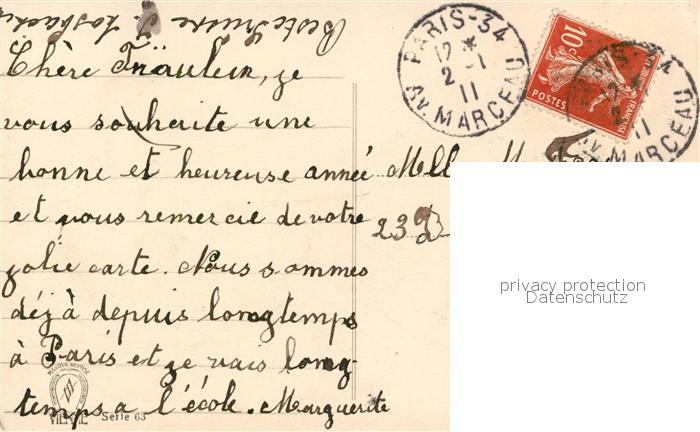 Beste Grüsse
Chère Fräulein, je
vous souhaite une
bonne et heureuse année
et vous remercie de votre
jolie carte. Nous sommes
déjà depuis longtemps
à Paris et je vais long-
temps a l'école. Marguerite
Melle
23
PARIS-34
12 *
2 -1
11
AV. MARCEAU
10c
POSTES
privacy protection
Datenschutz
Serie 63